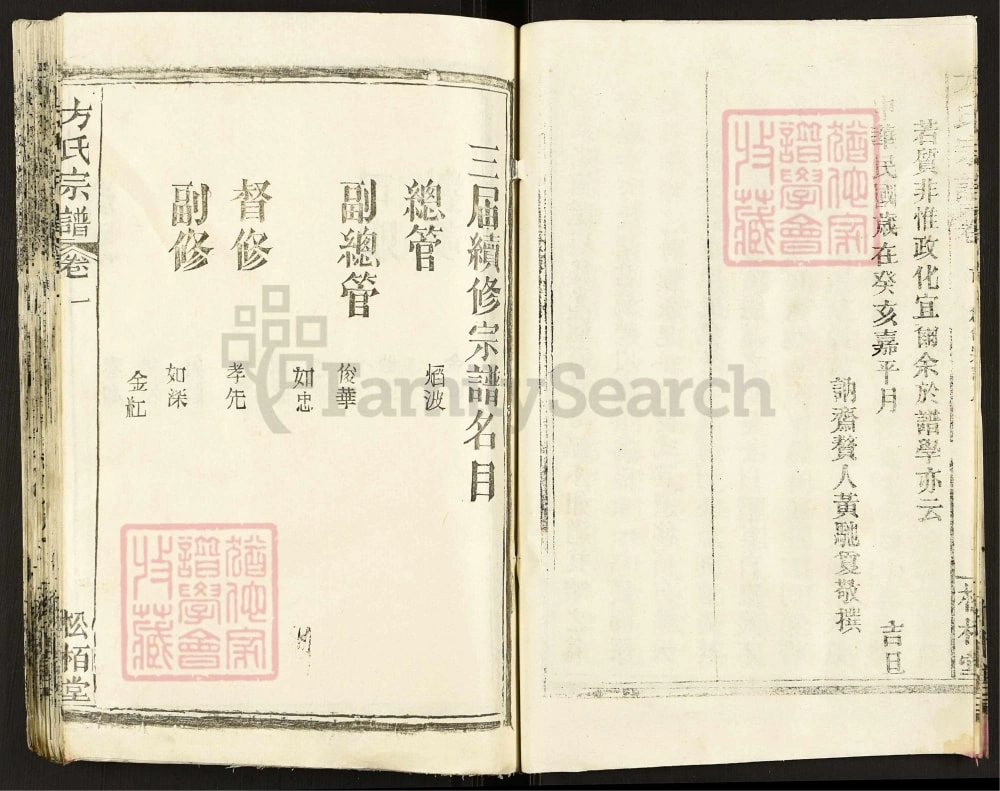 若質非惟政化宜爾余於譜學亦云
中華民國歲在癸亥嘉平月 吉旦
訥齋贅人黃馳敬撰
三届續修宗譜名目
總管
焰波
副總管
俊華
如忠
督修
孝先
副修
如深
金紅
方氏宗譜 卷一
松栢堂
譜學會
收藏
譜學會
收藏
FamilySearch